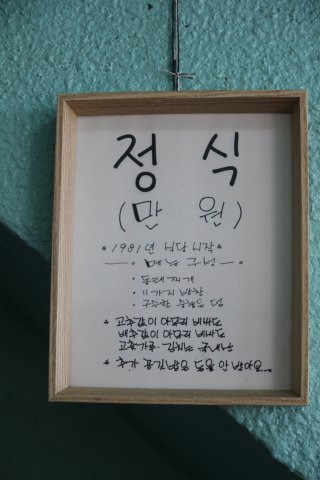 정 식
(만 원)
* 1981년 식당 시작 *
메뉴 구성
· 동태찌개
· 11가지 반찬
· 구수한 숭늉은 덤
* 고추값이 아무리 비싸도
배추값이 아무리 비싸도
고춧가루·김치는 국내산
* 추가 공기밥은 돈을 안 받아요.